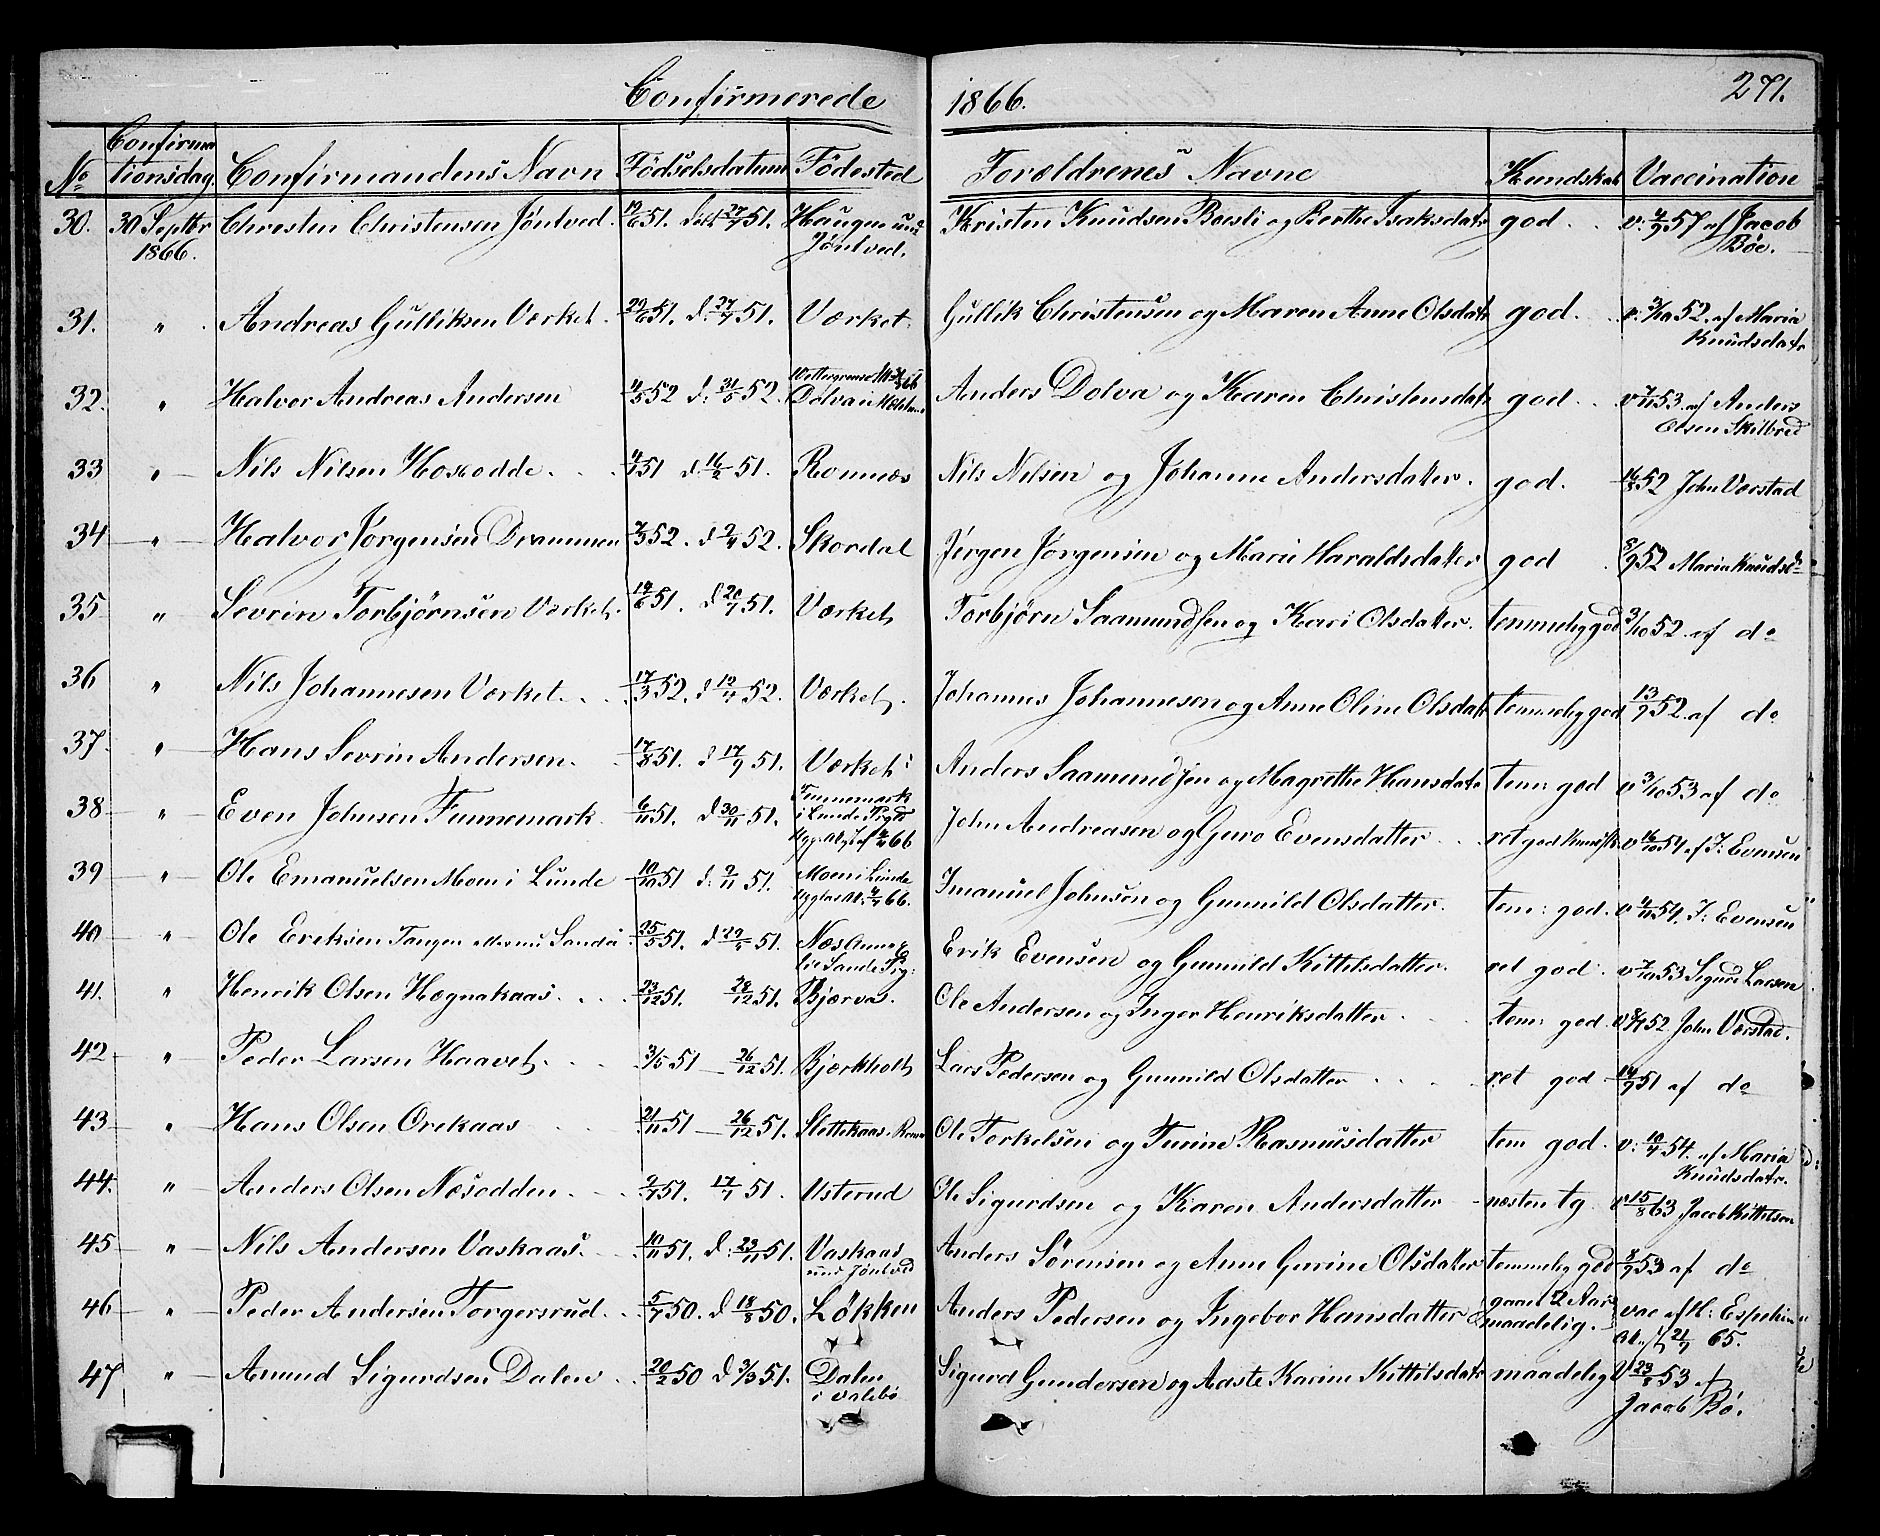 Confirmerede 1866. 271.
No Confirmationsdag. Confirmandens Navn Fødselsdatum Fødested Forældrenes Navne Kundskab Vaccination
30. 30 Septbr 1866. Chresten Christensen Jøntved. 19/6 51. døbt 27/7 51. Haugen und Jøntved. Kristen Knudsen Baesli og Berthe Isaksdatr god. v. 4/9 57 af Jacob Bøe.
31. " Andreas Gulliksen Værket. 29/6 51. d: 27/7 51. Værket. Gullik Christensen og Maren Anne Olsdatr god. v. 3/10 52. af Maria Knudsdatr
32. " Halvor Andreas Andersen 4/5 52 d: 31/5 52. Dolva i Melum Anders Dolva og Karen Christensdatr god. v 7/11 53. af Anders Olsen Skilbred
33 " Nils Nilsen Hosodde. 4/1 51 d. 16/2 51. Romnæs Nils Nilsen og Johanne Andersdatter. god. 16/8 52 John Værstad
34 " Halvor Jørgensen Drammen 7/3 52. d 9/4 52. Skordal Jørgen Jørgensen og Mari Haraldsdatter god 8/9 52 Maria Knudsd.
35 " Sevrin Torbjørnsen Værket. 14/6 51. d 20/7 51. Værket Torbjørn Saamundsen og Kari Olsdatter. temmelig god 3/10 52. af do
36 " Nils Johannesen Værket. 17/3 52. d 12/4 52. Værket. Johannes Johannesen og Anne Oline Olsdatr temmelig god 13/9 52. af do
37. " Hans Sevrin Andersen. 17/8 51. d 17/9 51. Værket Anders Saamundsen og Magrethe Hansdatr tem: god v 3/10 53 af do
38 " Even Johnsen Finnemark 6/11 51. d 30/11 51. Finnemark i Lunde Prgld John Andreasen og Guro Evensdatter ret god Kundsk. v 16/10 54 af J: Evensen
39 " Ole Emanuelsen Moen i Lunde 10/10 51 d: 9/11 51. Moen i Lunde Imanuel Johnsen og Gunnild Olsdatter. tem: god. v 4/11 54. J: Evensen
40 " Ole Eriksen Tangen 25/5 51. d 29/5 51. Næs Erik Evensen og Gunnild Kittelsdatter. ret god. v 7/10 53 Sigurd Larsen
41. " Henrik Olsen Hægnakaas. 23/12 51. 28/12 51. Bjærvas. Ole Andersen og Inger Henriksdatter tem: god. v 8/9 52 John Værstad.
42 " Peder Larsen Haavet. 3/5 51 26/12 51. Bjerkholt Lars Pedersen og Gunnild Olsdatter ret god 14/9 51 af do
43 " Hans Olsen Orekaas 21/11 51 26/12 51. Slettekaas. Ole Torkelsen og Turine Rasmusdatter tem god. v: 10/7 54. af Maria Knudsdatr.
44. " Anders Olsen Næsodden. 9/7 51. 17/7 51. Usterud Ole Sigurdsen og Karen Andersdatter næsten tg v 15/8 63 Jacob Kittelsen
45 " Nils Andersen Vaskaas. 10/11 51. d: 23/11 51. Vaskaas und Jøntved Anders Sørensen og Anne Gurine Olsdatter temmelig god 8/9 53 af do
46 " Peder Andersen Torgersrud. 5/7 50. d 18/8 50. Løkken Anders Pedersen og Ingebor Hansdatter gaaet 2 Aar maadelig. vac af H: Espelien 21/7 65.
47 " Amund Sigurdsen Dalen 20/2 50 d 3/3 51. Dalen i Valebø Sigurd Gundersen og Aaste Karine Kittilsdatr maadelig v 23/8 53 af Jacob Bø.